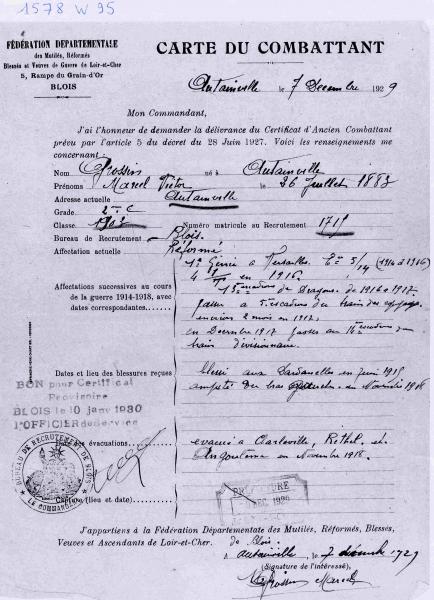 1578 W 95
FÉDÉRATION DÉPARTEMENTALE
des Mutilés, Réformés
Blessés et Veuves de Guerre de Loir-et-Cher
5, Rampe du Grain-d'Or
BLOIS
CARTE DU COMBATTANT
Autainville le 7 Décembre 1929
Mon Commandant,
J'ai l'honneur de demander la délivrance du Certificat d'Ancien Combattant
prévu par l'article 5 du décret du 28 Juin 1927. Voici les renseignements me
concernant :
Nom Grossin né à Autainville
Prénoms Marcel Victor le 26 Juillet 1883
Adresse actuelle Autainville
Grade 2me C
Classe 1903 Numéro matricule au Recrutement 1719
Bureau de Recrutement Blois.
Affectation actuelle Réformé
Affectations successives au cours
de la guerre 1914-1918, avec
dates correspondantes
1er Génie à Versailles Cie 5/14 (1914 à 1916)
4 en 1916
15 escadron de Dragons de 1916 à 1917
passer a 5 escadron du train des
environ 2 mois en 1917.
en Décembre 1917 passer au 16 escadron
train divisionnaire.
Dates et lieu des blessures reçues
blessé aux Dardanelles en Juin 1915
amputé du bras gauche en Novembre 1918
BON pour Certificat
Provisoire
BLOIS le 10 janv 1930
l'OFFICIER de service
évacuations
évacué à Charleville, Réthel, et
Angoulême en Novembre 1918.
BUREAU DE RECRUTEMENT DE BLOIS
LE COMMANDANT
Capture (lieu et date)
DEC 1929
J'appartiens à la Fédération Départementale des Mutilés, Réformés, Blessés,
Veuves et Ascendants de Loir-et-Cher. de Blois.
à Autainville, le 7 décembre 1929
(Signature de l'intéressé),
Grossin Marcel